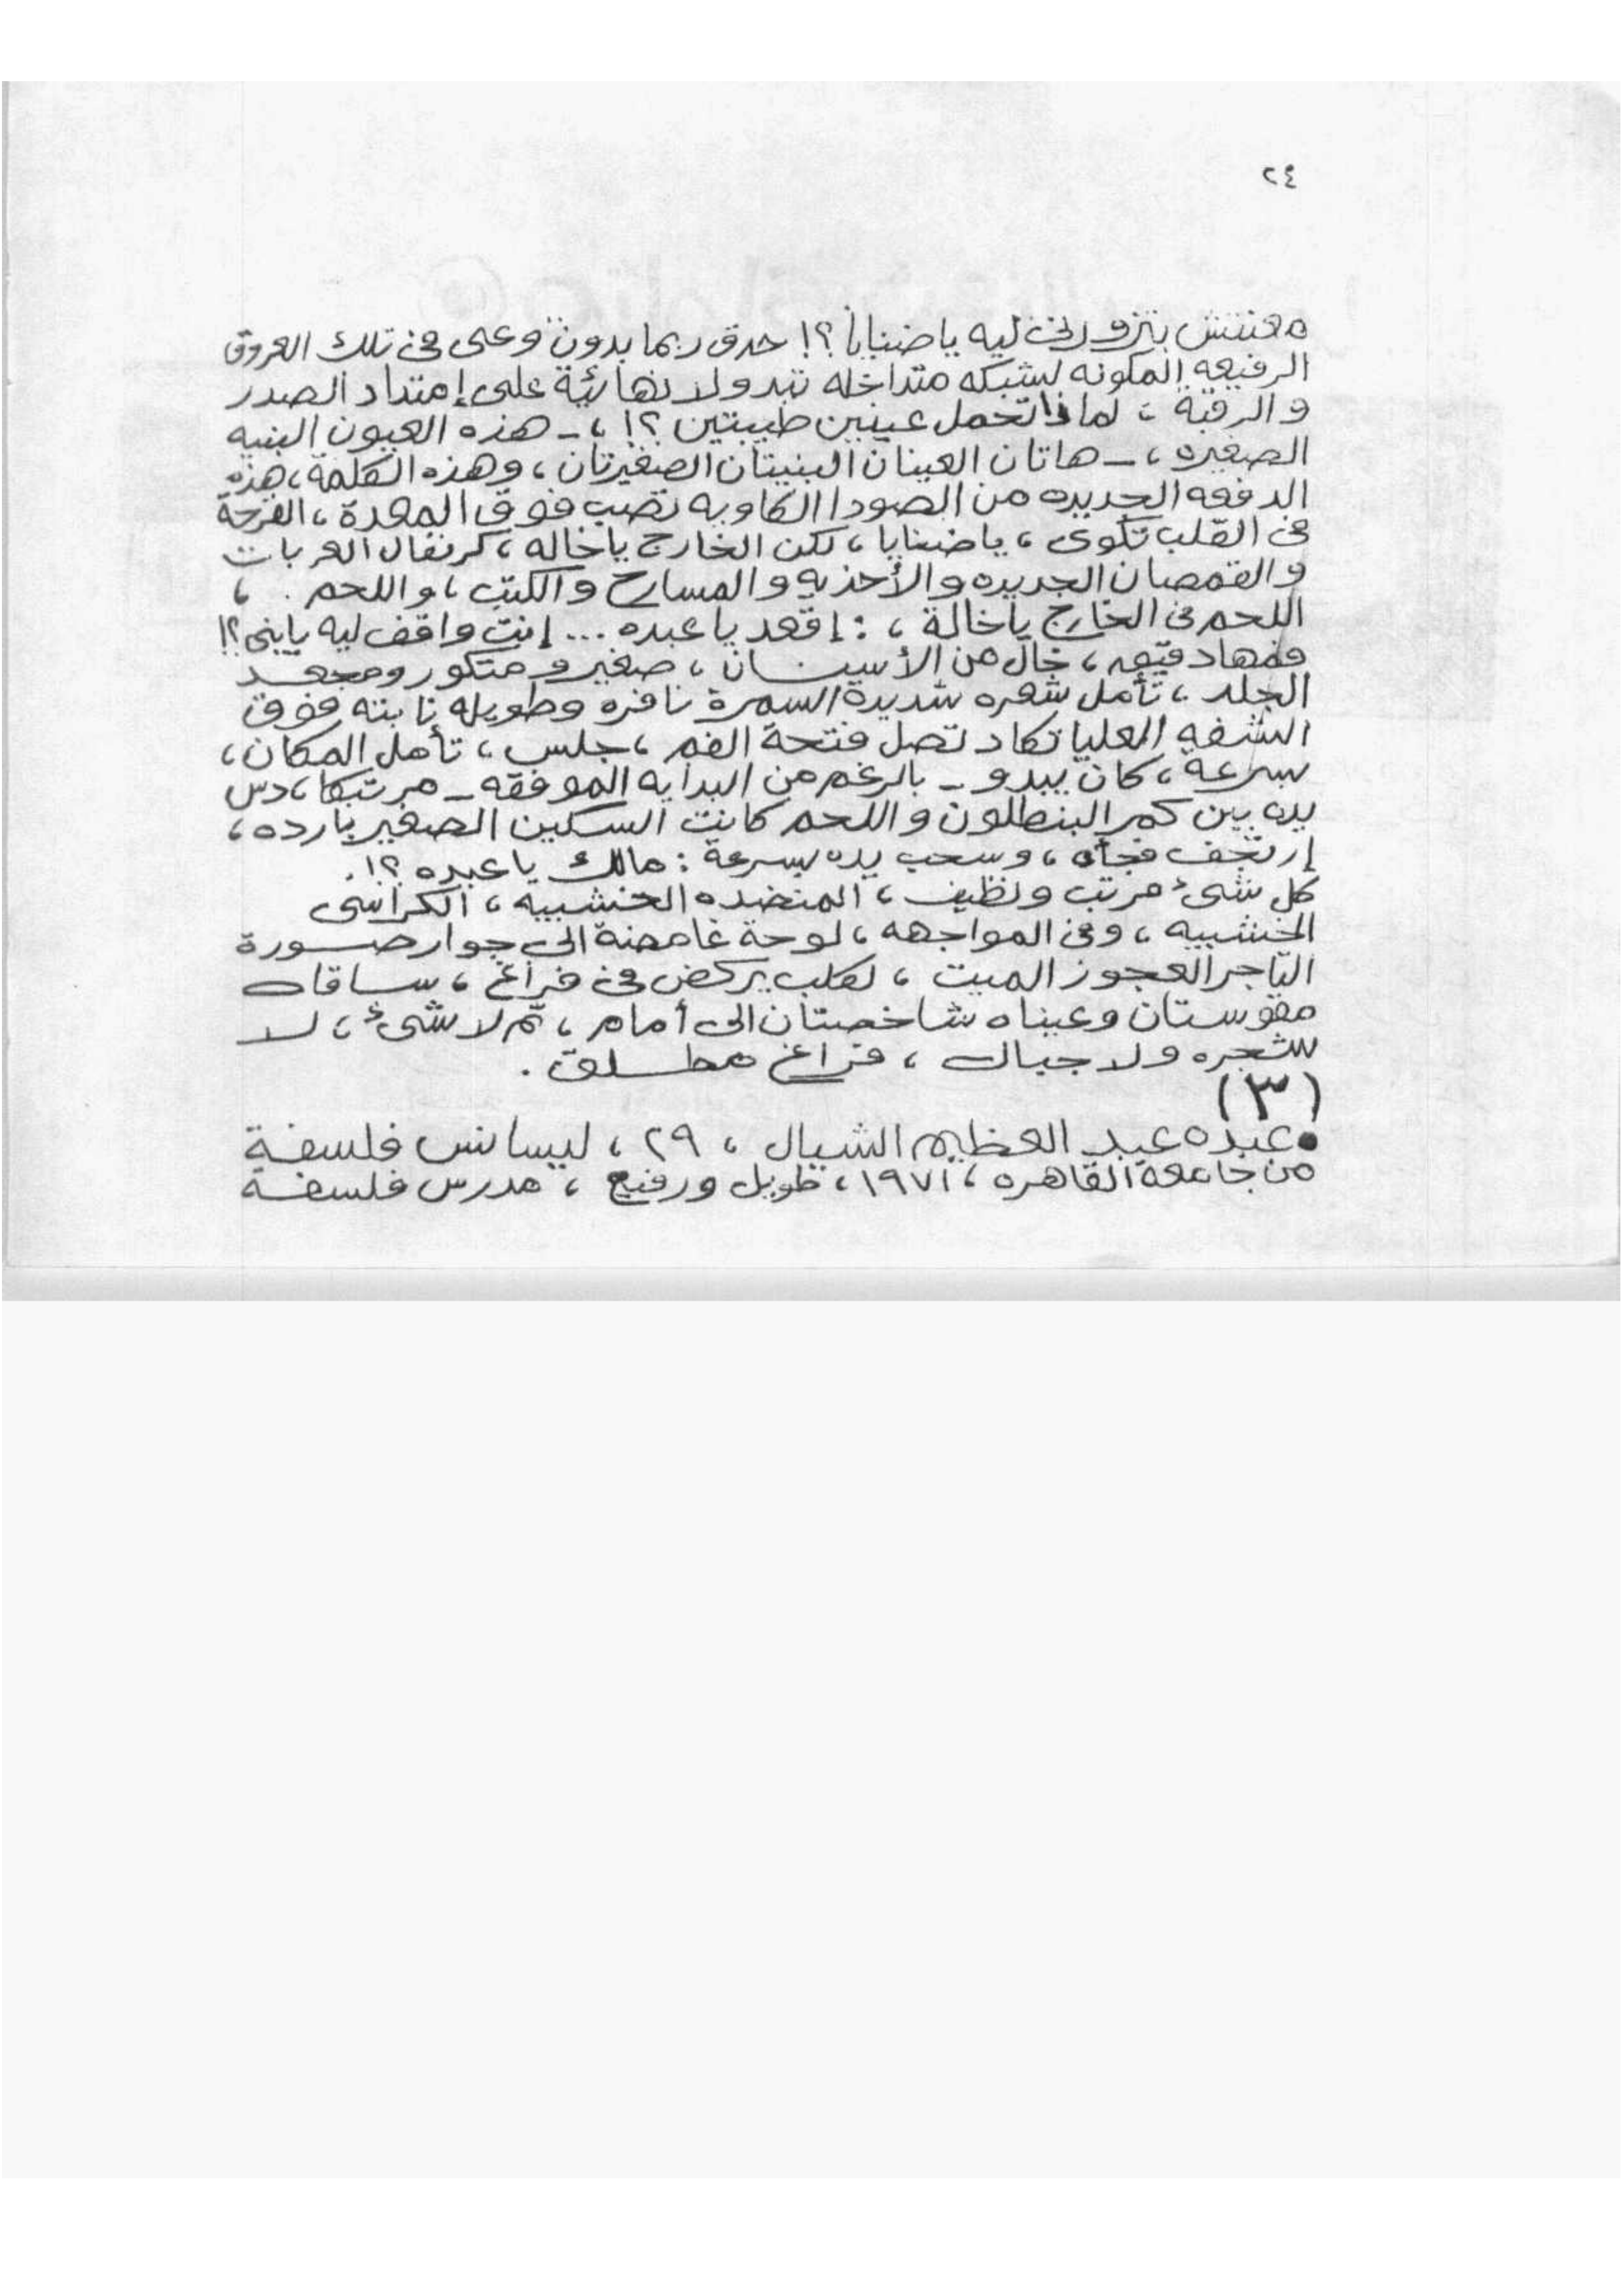 ٢٤
معنتش بتزورنى ليه ياضنايا ؟! حدق ربما بدون وعى فى تلك العروق
الرفيعه المكونه لشبكه متداخله تبدو لا نهائية على إمتداد الصدر
و الرقبة ، لماذا تحمل عينين طيبتين ؟! ، ـ هذه العيون البنيه
الصغيره ، ـ هاتان العينان البنيتان الصغيرتان ، وهذه الكلمة ، هذه
الدفعه الجديده من الصودا الكاويه تصب فوق المعدة ، القرحة
فى القلب تكوى ، ياضنايا ، لكن الخارج ياخاله ، كرنفال العربات
و القمصان الجديده و الأحذيه و المسارح و الكتب ، و اللحم . ،
اللحم فى الخارج ياخالة ، : إقعد يا عبده ... إنت واقف ليه يابنى ؟!
فمها دقيق ، خال من الأسنان ، صغير و متكور ومجعد
الجلد ، تأمل شعره شديدة السمرة نافره وطويله نابته فوق
الشفه العليا تكاد تصل فتحة الفم ، جلس ، تأمل المكان ،
بسرعة ، كان يبدو ـ بالرغم من البدايه الموفقه ـ مرتبكا ، دس
يده بين كمر البنطلون و اللحم كانت السكين الصغير بارده ،
إرتجف فجأه ، و سحب يده بسرعة : مالك يا عبده ؟! .
كل شىء مرتب ونظيف ، المنضده الخشبيه ، الكراسى
الخشبيه ، وفى المواجهه ، لوحة غامضة الى جوار صورة
التاجر العجوز الميت ، لكلب يركض فى فراغ ، ساقاه
مقوستان وعيناه شاخصتان الى أمام ، ثم لا شىء ، لا
شجره ولا جبال ، فراغ مطلق .
(٣)
• عبده عبد العظيم الشيال ، ٢٩ ، ليسانس فلسفة
من جامعة القاهره ، ١٩٧١ ، طويل ورفيع ، مدرس فلسفة